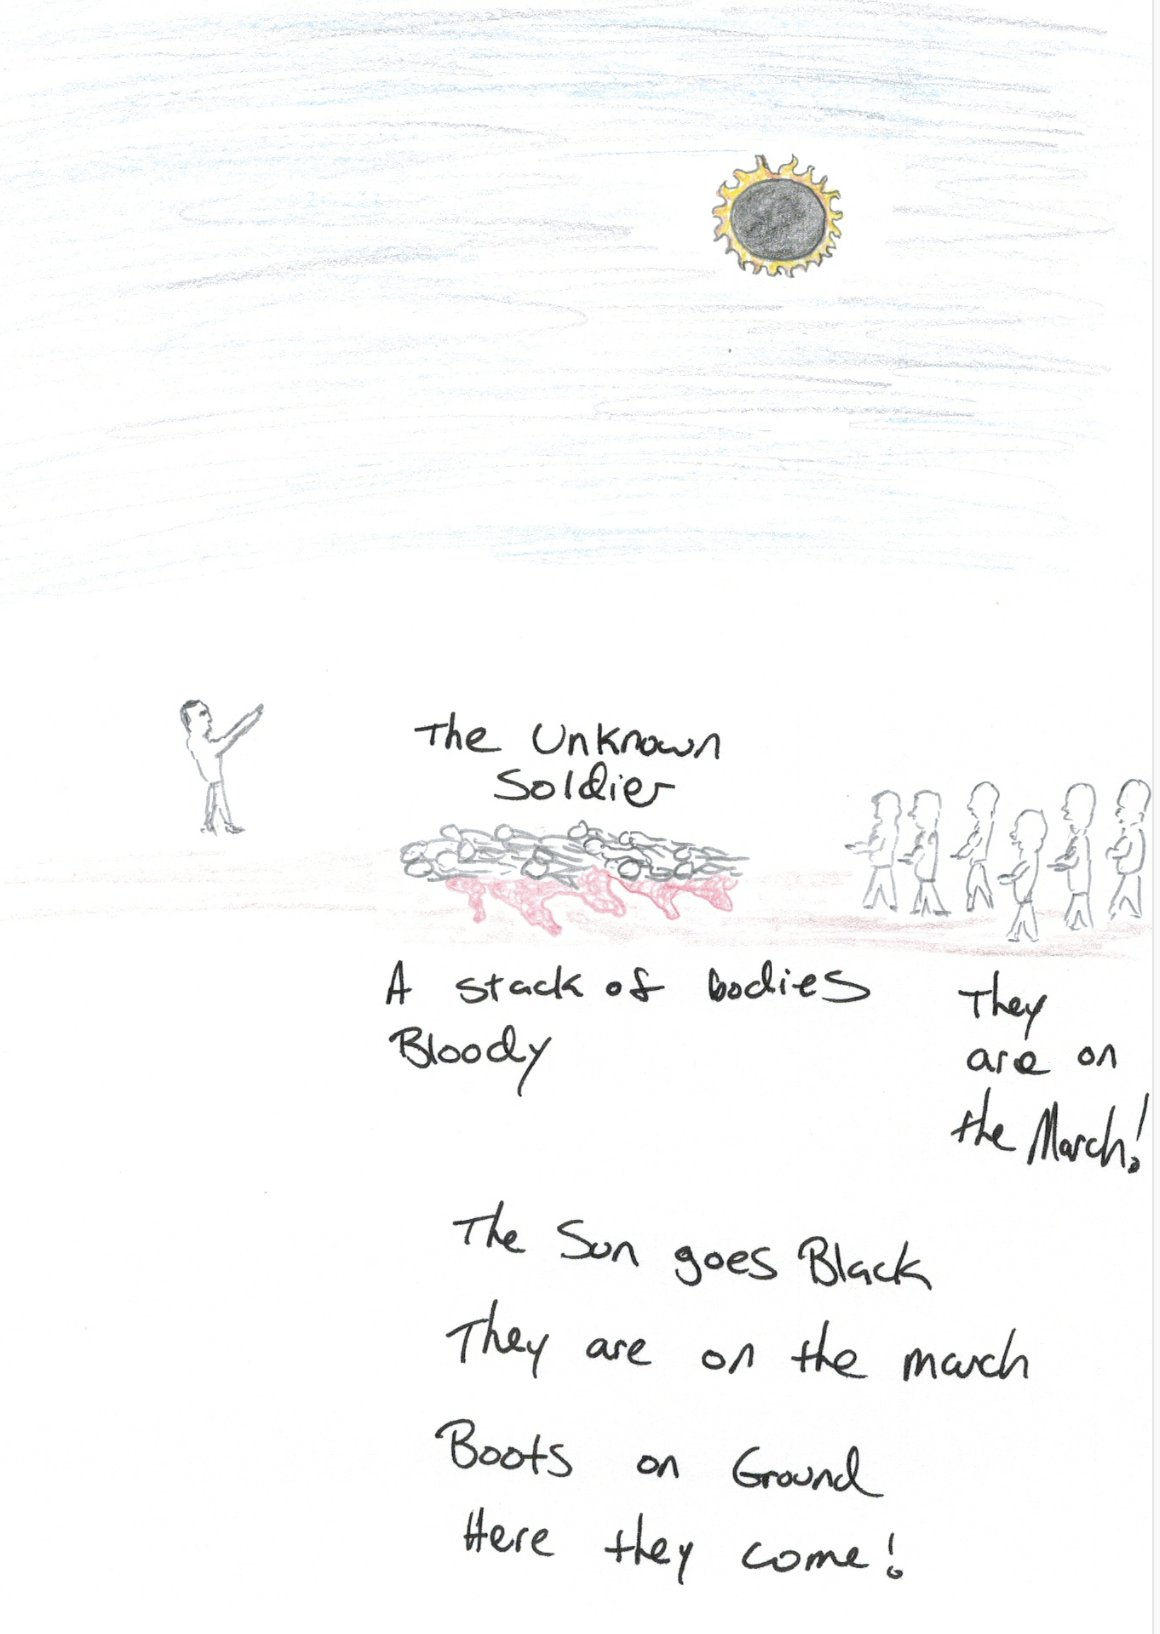 The Unknown
Soldier
A stack of bodies
Bloody
They
are on
the March!
The Sun goes Black
They are on the march
Boots on Ground
Here they come!